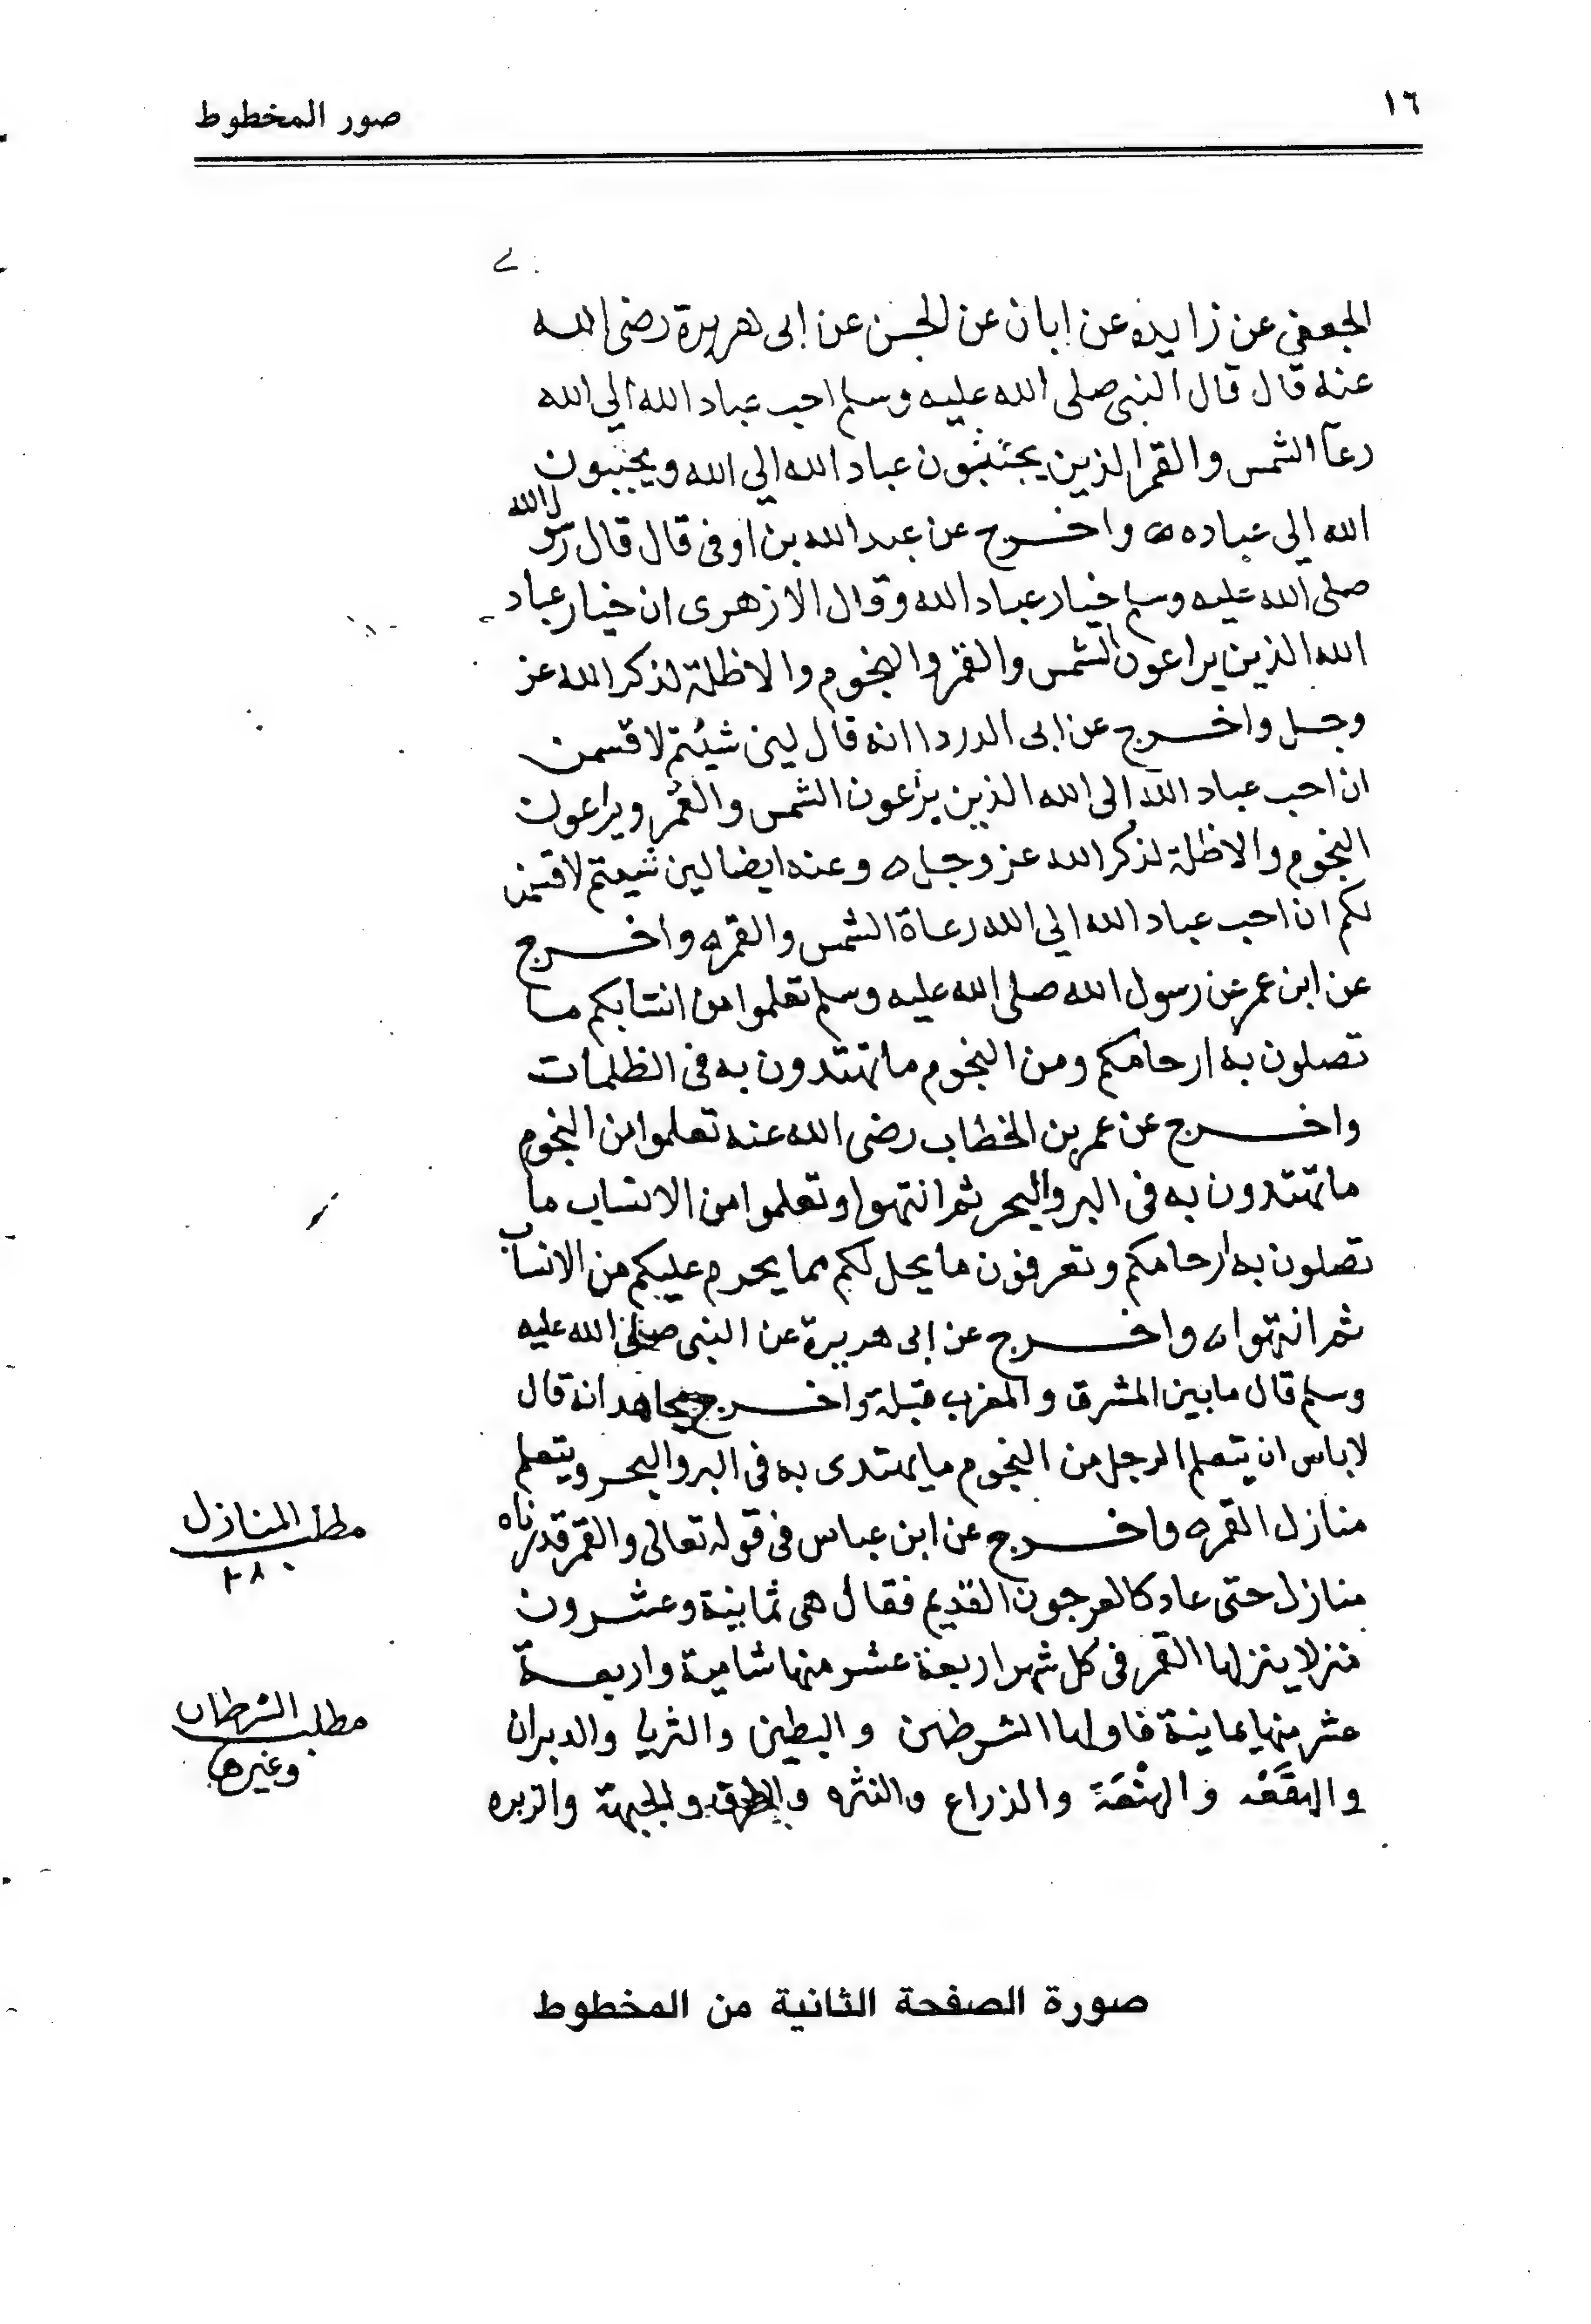 ١٦
صور المخطوط
الجعفي عن زايده عن ابان عن الحسن عن ابى هريرة رضى الله
عنه قال قال النبى صلى الله عليه وسلم احب عباد الله الى الله
رعآ الشمس والقمر الذين يحببون عباد الله الى الله ويحببون
الله الى عباده ه واخرج عن عبد الله بن اوفى قال قال رسول الله
صلى الله عليه وسلم خيار عباد الله وقال الازهرى ان خيار عباد
الله الذين يراعون الشمس والقمر والنجوم والاظلة لذكر الله عز
وجل واخرج عن ابى الدردا انه قال لين شيتم لاقسمن
ان احب عباد الله الى الله الذين يرعون الشمس والقمر ويراعون
النجوم والاظلة لذكر الله عز وجل ه وعنه ايضا لين شيتم لاقسمن
لكم ان احب عباد الله الى الله رعاة الشمس والقمر ه واخرج
عن ابن عمر عن رسول الله صلى الله عليه وسلم تعلموا من انسابكم ما
تصلون به ارحامكم ومن النجوم ما تهتدون به فى الظلمات
واخرج عن عمر بن الخطاب رضى الله عنه تعلموا من النجوم
ما تهتدون به فى البر والبحر ثم انتهوا وتعلموا من الانساب ما
تصلون به ارحامكم وتعرفون ما يحل لكم مما يحرم عليكم من الانساب
ثم انتهوا ه واخرج عن ابى هريرة عن النبى صلى الله عليه
وسلم قال ما بين المشرق والمغرب قبلة واخرج مجاهد انه قال
لاباس ان يتعلم الرجل من النجوم ما يهتدى به فى البر والبحر ويتعلم
منازل القمر ه واخرج عن ابن عباس فى قوله تعالى والقمر قدرناه
مطلب المنازل
٢٨
منازل حتى عاد كالعرجون القديم فقال هى ثمانية وعشرون
منزلا ينزلها القمر فى كل شهر اربعة عشر منها شامية واربعة
عشر منها يمانية فاولها الشرطين والبطين والثريا والدبران
مطلب الشرطان
وغيرها
والهقعه والهنعة والذراع والنثره والطرف والجبهة والزبره
صورة الصفحة الثانية من المخطوط